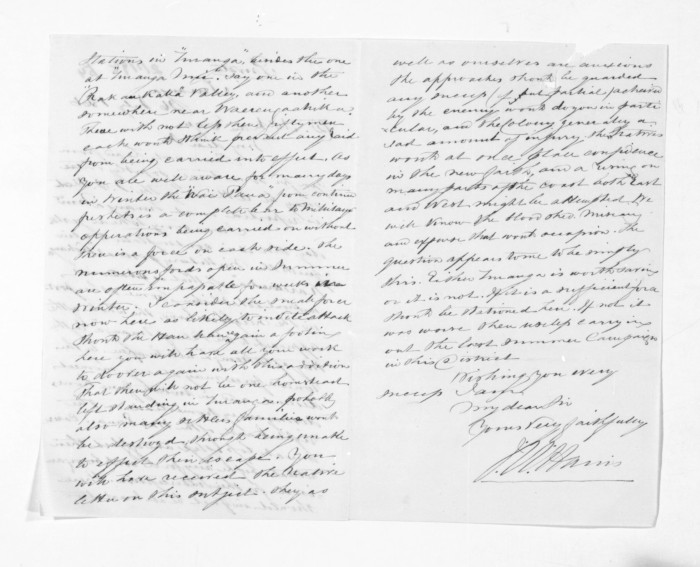 Stations in "Turanga", besides the one
at "Turanga Nui". Say one in the
Valley, and another
somewhere near Waerenga a hika.
These with not less than fifty men
each would I think prevent any raid
from being carried into effect. As
you are well aware for many days
in Winter the "Wai Paoa" from continued
freshets is a complete bar to Military
operations being carried on without
there is a force on each side. The
numerous fords open in Summer
are often impassable for weeks in
winter. I consider the small force
now here as likely to invite attack
Should the Hau Haus gain a footing
here you will have all your work
to do over again with this addition
That there will not be one homestead
left standing in Turanga. probably
also many settlers families would
be destroyed, through being unable
to effect their escape. You
will have received the Native
letter on this subject. They as
well as ourselves are anxious
the approaches should be guarded
any success if but partial achieved
by the enemy would do you in parti
cular, and the Colony generally a
sad amount of injury, the Natives
would at once place confidence
in the new , and a rising on
many parts of the coast both East
and West might be attempted. We
well know the bloodshed misery
and expense that would occasion. The
question appears to me to be simply
this. Either Turanga is worth saving
or it is not. If it is a sufficient force
should be stationed here. If not it
was worse than useless carrying
out the last summer Campaign
in this District.
Wishing you every
success I am
My dear Sir
Yours very faithfully
J. W. Harris